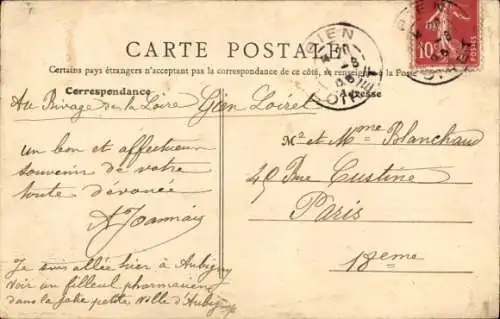 CARTE POSTALE
Certains pays étrangers n'acceptant pas la correspondance de ce côté, se renseigner à la Poste
Correspondance
Adresse
Au Rivage de la Loire Gien Loiret
un bon et affectueux
souvenir de votre
toute dévouée
Je suis allée hier à Aubigny
voir un filleul pharmacien
dans la jolie petite ville d'Aubigny
Mr et Mme Blanchaud
49 Rue Custine
Paris
18eme
GIEN
LOIRET
GIEN
10
POSTES